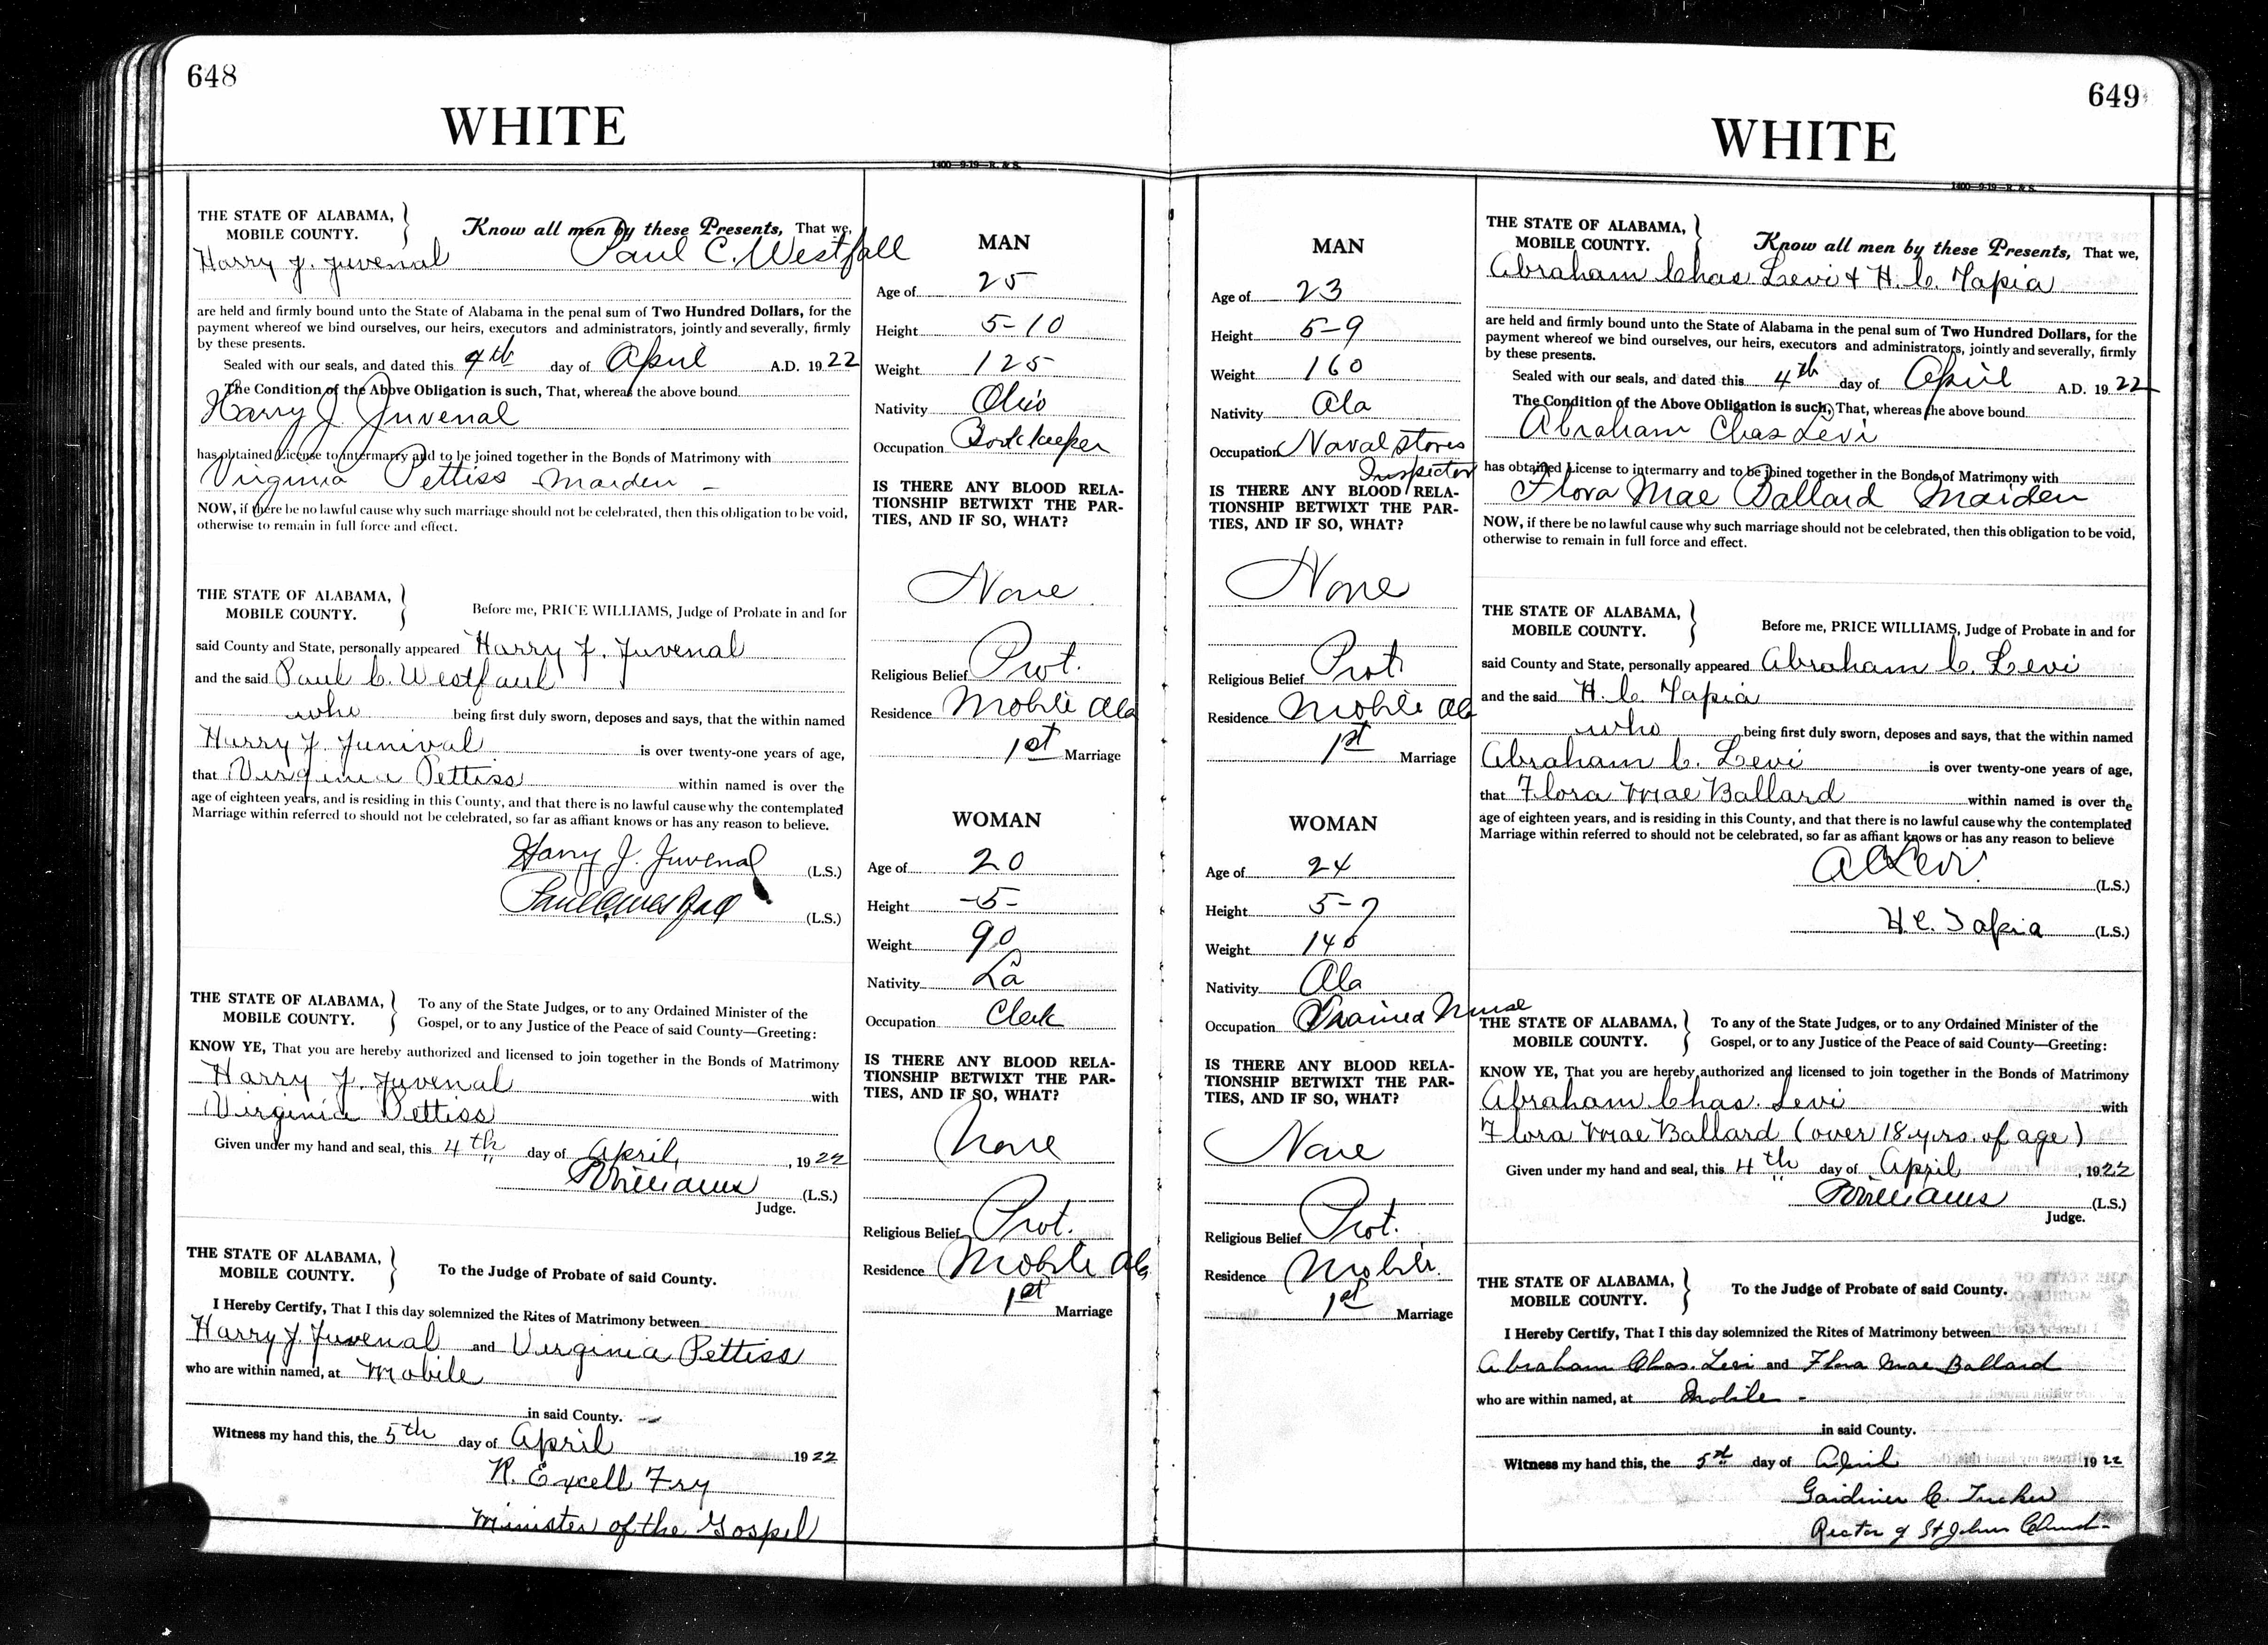 648
WHITE
1400—9-19—R. & S.
THE STATE OF ALABAMA,
MOBILE COUNTY.
Know all men by these Presents, That we,
Harry J. Juvenal Paul C. Westfall
are held and firmly bound unto the State of Alabama in the penal sum of Two Hundred Dollars, for the
payment whereof we bind ourselves, our heirs, executors and administrators, jointly and severally, firmly
by these presents.
Sealed with our seals, and dated this 4th day of April A.D. 1922
The Condition of the Above Obligation is such, That, whereas the above bound
Harry J Juvenal
has obtained License to intermarry and to be joined together in the Bonds of Matrimony with
Virginia Pettiss Maiden -
NOW, if there be no lawful cause why such marriage should not be celebrated, then this obligation to be void,
otherwise to remain in full force and effect.
THE STATE OF ALABAMA,
MOBILE COUNTY.
Before me, PRICE WILLIAMS, Judge of Probate in and for
said County and State, personally appeared Harry J. Juvenal
and the said Paul C. Westfaul
who being first duly sworn, deposes and says, that the within named
Harry J. Junival is over twenty-one years of age,
that Virginia Pettiss within named is over the
age of eighteen years, and is residing in this County, and that there is no lawful cause why the contemplated
Marriage within referred to should not be celebrated, so far as affiant knows or has any reason to believe.
Harry J. Juvenal (L.S.)
(L.S.)
THE STATE OF ALABAMA,
MOBILE COUNTY.
To any of the State Judges, or to any Ordained Minister of the
Gospel, or to any Justice of the Peace of said County—Greeting:
KNOW YE, That you are hereby authorized and licensed to join together in the Bonds of Matrimony
Harry J. Juvenal with
Virginia Pettiss
Given under my hand and seal, this 4th day of April, 1922
PWilliams (L.S.)
Judge.
THE STATE OF ALABAMA,
MOBILE COUNTY.
To the Judge of Probate of said County.
I Hereby Certify, That I this day solemnized the Rites of Matrimony between
Harry J. Juvenal and Virginia Pettiss
who are within named, at Mobile
in said County.
Witness my hand this, the 5th day of April 1922
R. Excell Fry
Minister of the Gospel
MAN
Age of 25
Height 5-10
Weight 125
Nativity Ohio
Occupation Bookkeeper
IS THERE ANY BLOOD RELA-
TIONSHIP BETWIXT THE PAR-
TIES, AND IF SO, WHAT?
None
Religious Belief Prot.
Residence Mobile Ala
1st Marriage
WOMAN
Age of 20
Height -5-
Weight 90
Nativity La
Occupation Clerk
IS THERE ANY BLOOD RELA-
TIONSHIP BETWIXT THE PAR-
TIES, AND IF SO, WHAT?
None
Religious Belief Prot.
Residence Mobile Ala
1st Marriage
649
WHITE
1400—9-19—R. & S.
MAN
Age of 23
Height 5-9
Weight 160
Nativity Ala
Occupation Naval stores
Inspector
IS THERE ANY BLOOD RELA-
TIONSHIP BETWIXT THE PAR-
TIES, AND IF SO, WHAT?
None
Religious Belief Prot
Residence Mobile Ala
1st Marriage
WOMAN
Age of 24
Height 5-7
Weight 140
Nativity Ala
Occupation Trained Nurse
IS THERE ANY BLOOD RELA-
TIONSHIP BETWIXT THE PAR-
TIES, AND IF SO, WHAT?
None
Religious Belief Prot.
Residence Mobile.
1st Marriage
THE STATE OF ALABAMA,
MOBILE COUNTY.
Know all men by these Presents, That we,
Abraham Chas Levi & H. C. Tapia
are held and firmly bound unto the State of Alabama in the penal sum of Two Hundred Dollars, for the
payment whereof we bind ourselves, our heirs, executors and administrators, jointly and severally, firmly
by these presents.
Sealed with our seals, and dated this 4th day of April A.D. 1922
The Condition of the Above Obligation is such, That, whereas the above bound
Abraham Chas Levi
has obtained License to intermarry and to be joined together in the Bonds of Matrimony with
Flora Mae Ballard Maiden
NOW, if there be no lawful cause why such marriage should not be celebrated, then this obligation to be void,
otherwise to remain in full force and effect.
THE STATE OF ALABAMA,
MOBILE COUNTY.
Before me, PRICE WILLIAMS, Judge of Probate in and for
said County and State, personally appeared Abraham C. Levi
and the said H. C. Tapia
who being first duly sworn, deposes and says, that the within named
Abraham C. Levi is over twenty-one years of age,
that Flora Mae Ballard within named is over the
age of eighteen years, and is residing in this County, and that there is no lawful cause why the contemplated
Marriage within referred to should not be celebrated, so far as affiant knows or has any reason to believe
A C Levi (L.S.)
H. C. Tapia (L.S.)
THE STATE OF ALABAMA,
MOBILE COUNTY.
To any of the State Judges, or to any Ordained Minister of the
Gospel, or to any Justice of the Peace of said County—Greeting:
KNOW YE, That you are hereby authorized and licensed to join together in the Bonds of Matrimony
Abraham Chas. Levi with
Flora Mae Ballard (over 18 yrs. of age)
Given under my hand and seal, this 4th day of April, 1922
PWilliams (L.S.)
Judge.
THE STATE OF ALABAMA,
MOBILE COUNTY.
To the Judge of Probate of said County.
I Hereby Certify, That I this day solemnized the Rites of Matrimony between
Abraham Chas. Levi and Flora Mae Ballard
who are within named, at Mobile -
in said County.
Witness my hand this, the 5th day of April 1922
Gardiner C. Tucker
Rector of St Johns Church-